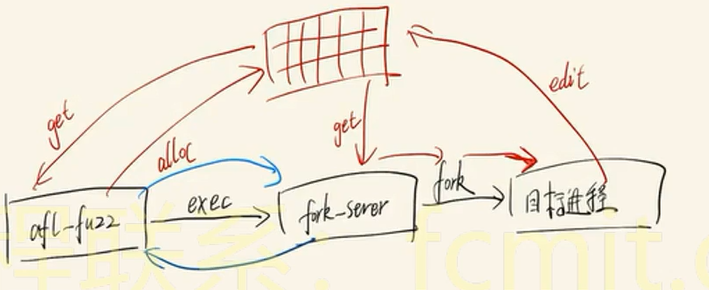 get
alloc
get
edit
afl-fuzz
exec
fork-serer
fork
目标进程
联系: fcmit.c